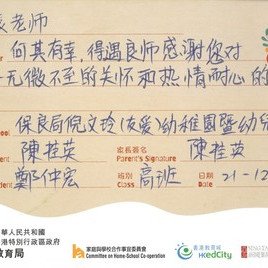 老师
何其有幸,得遇良师感谢您对
无微不至的关怀和热情耐心的
保良局倪文玲(友爱)幼稚園暨幼兒
陳桂英 家長簽名 陳桂英
Parent's Signature
鄭仲宏 班別 高班 日期 21-12
Class Date
華人民共和國
港特別行政區政府
教育局
家庭與學校合作事宜委員會
Committee on Home-School Co-operation
香港教育城
HKedCity